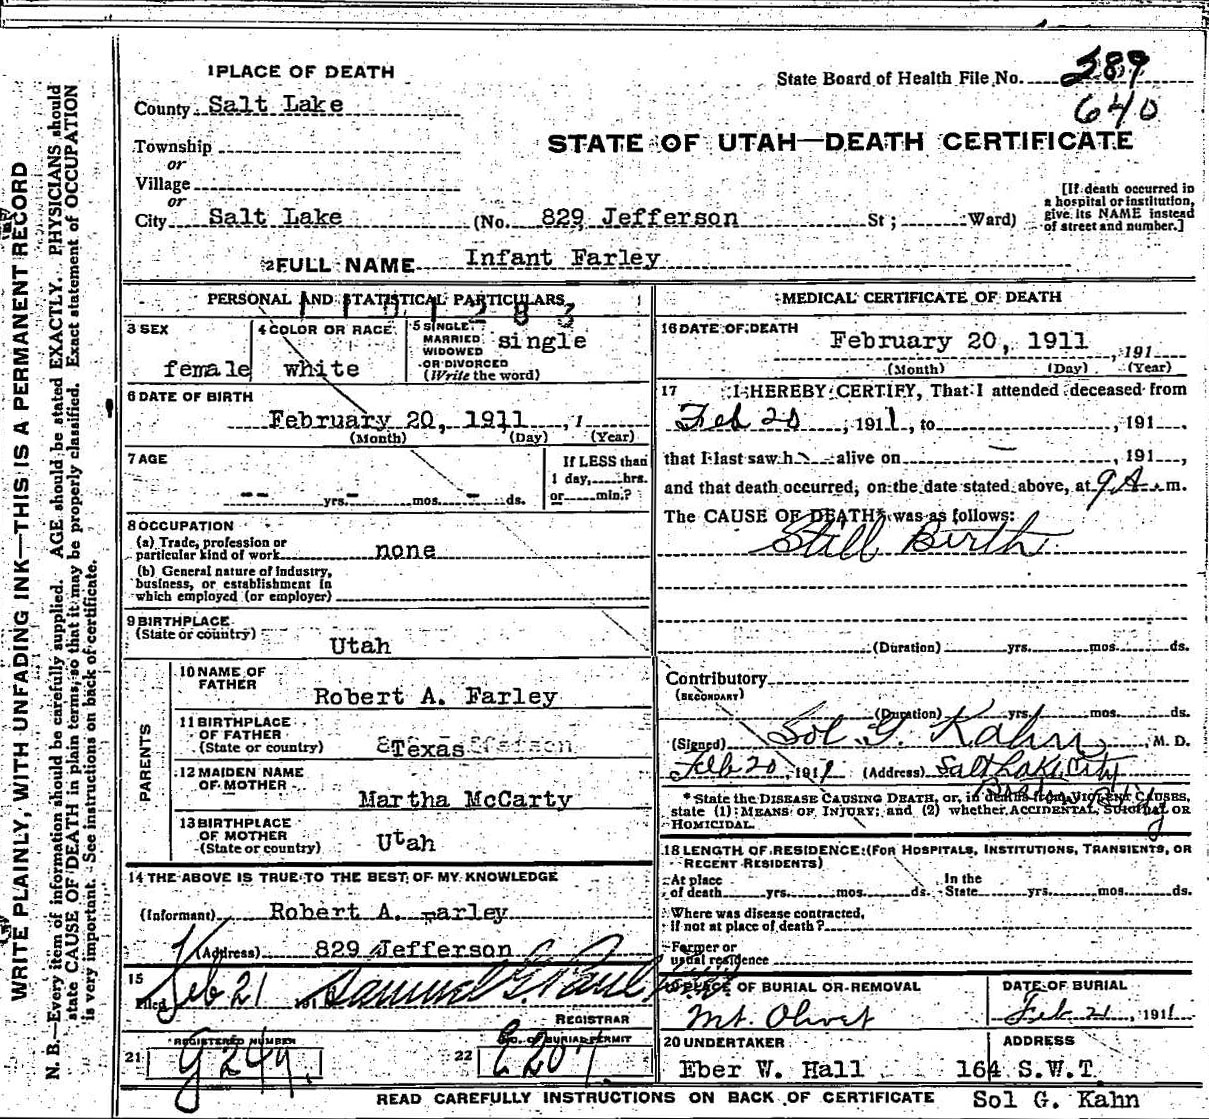 WRITE PLAINLY, WITH UNFADING INK—THIS IS A PERMANENT RECORD
N. B.—Every item of information should be carefully supplied. AGE should be stated EXACTLY. PHYSICIANS should
state CAUSE OF DEATH in plain terms, so that it may be properly classified. Exact statement of OCCUPATION
is very important. See instructions on back of certificate.
1 PLACE OF DEATH
State Board of Health File No. 289
640
County Salt Lake
STATE OF UTAH—DEATH CERTIFICATE
Township
or
Village
or
City Salt Lake (No. 829 Jefferson St ; Ward)
[If death occurred in
a hospital or institution,
give its NAME instead
of street and number.]
2 FULL NAME Infant Farley
PERSONAL AND STATISTICAL PARTICULARS
3 SEX
female
4 COLOR OR RACE
white
5 SINGLE
MARRIED
WIDOWED
OR DIVORCED
(Write the word)
single
6 DATE OF BIRTH
February 20, 1911, 1
(Month) (Day) (Year)
7 AGE
-- yrs. - mos. - ds.
If LESS than
1 day, hrs.
or min.?
8 OCCUPATION
(a) Trade, profession or
particular kind of work none
(b) General nature of industry,
business, or establishment in
which employed (or employer)
9 BIRTHPLACE
(State or country)
Utah
PARENTS
10 NAME OF
FATHER
Robert A. Farley
11 BIRTHPLACE
OF FATHER
(State or country)
Texas
12 MAIDEN NAME
OF MOTHER
Martha McCarty
13 BIRTHPLACE
OF MOTHER
(State or country)
Utah
14 THE ABOVE IS TRUE TO THE BEST OF MY KNOWLEDGE
(Informant) Robert A. Farley
(Address) 829 Jefferson
15
Filed Feb 21 191 Samuel G. Paul
REGISTRAR
21 REGISTERED NUMBER
G 249.
22 NO. OF BURIAL PERMIT
E 207
MEDICAL CERTIFICATE OF DEATH
16 DATE OF DEATH
February 20, 1911, 191
(Month) (Day) (Year)
17 I HEREBY CERTIFY, That I attended deceased from
Feb 20, 1911, to , 191 ,
that I last saw h alive on , 191 ,
and that death occurred, on the date stated above, at 9 A. m.
The CAUSE OF DEATH* was as follows:
Still Birth
(Duration) yrs. mos. ds.
Contributory
(SECONDARY)
(Duration) yrs. mos. ds.
(Signed) Sol G. Kahn, M. D.
Feb 20, 1911 (Address) Salt Lake City
* State the DISEASE CAUSING DEATH, or, in deaths from VIOLENT CAUSES,
state (1) MEANS OF INJURY; and (2) whether ACCIDENTAL, SUICIDAL OR
HOMICIDAL.
18 LENGTH OF RESIDENCE (FOR HOSPITALS, INSTITUTIONS, TRANSIENTS, OR
RECENT RESIDENTS)
At place
of death yrs. mos. ds. In the
State yrs. mos. ds.
Where was disease contracted,
if not at place of death?
Former or
usual residence
19 PLACE OF BURIAL OR REMOVAL
Mt. Olivet
DATE OF BURIAL
Feb 21, 1911
20 UNDERTAKER
Eber W. Hall
ADDRESS
164 S.W.T.
READ CAREFULLY INSTRUCTIONS ON BACK OF CERTIFICATE
Sol G. Kahn